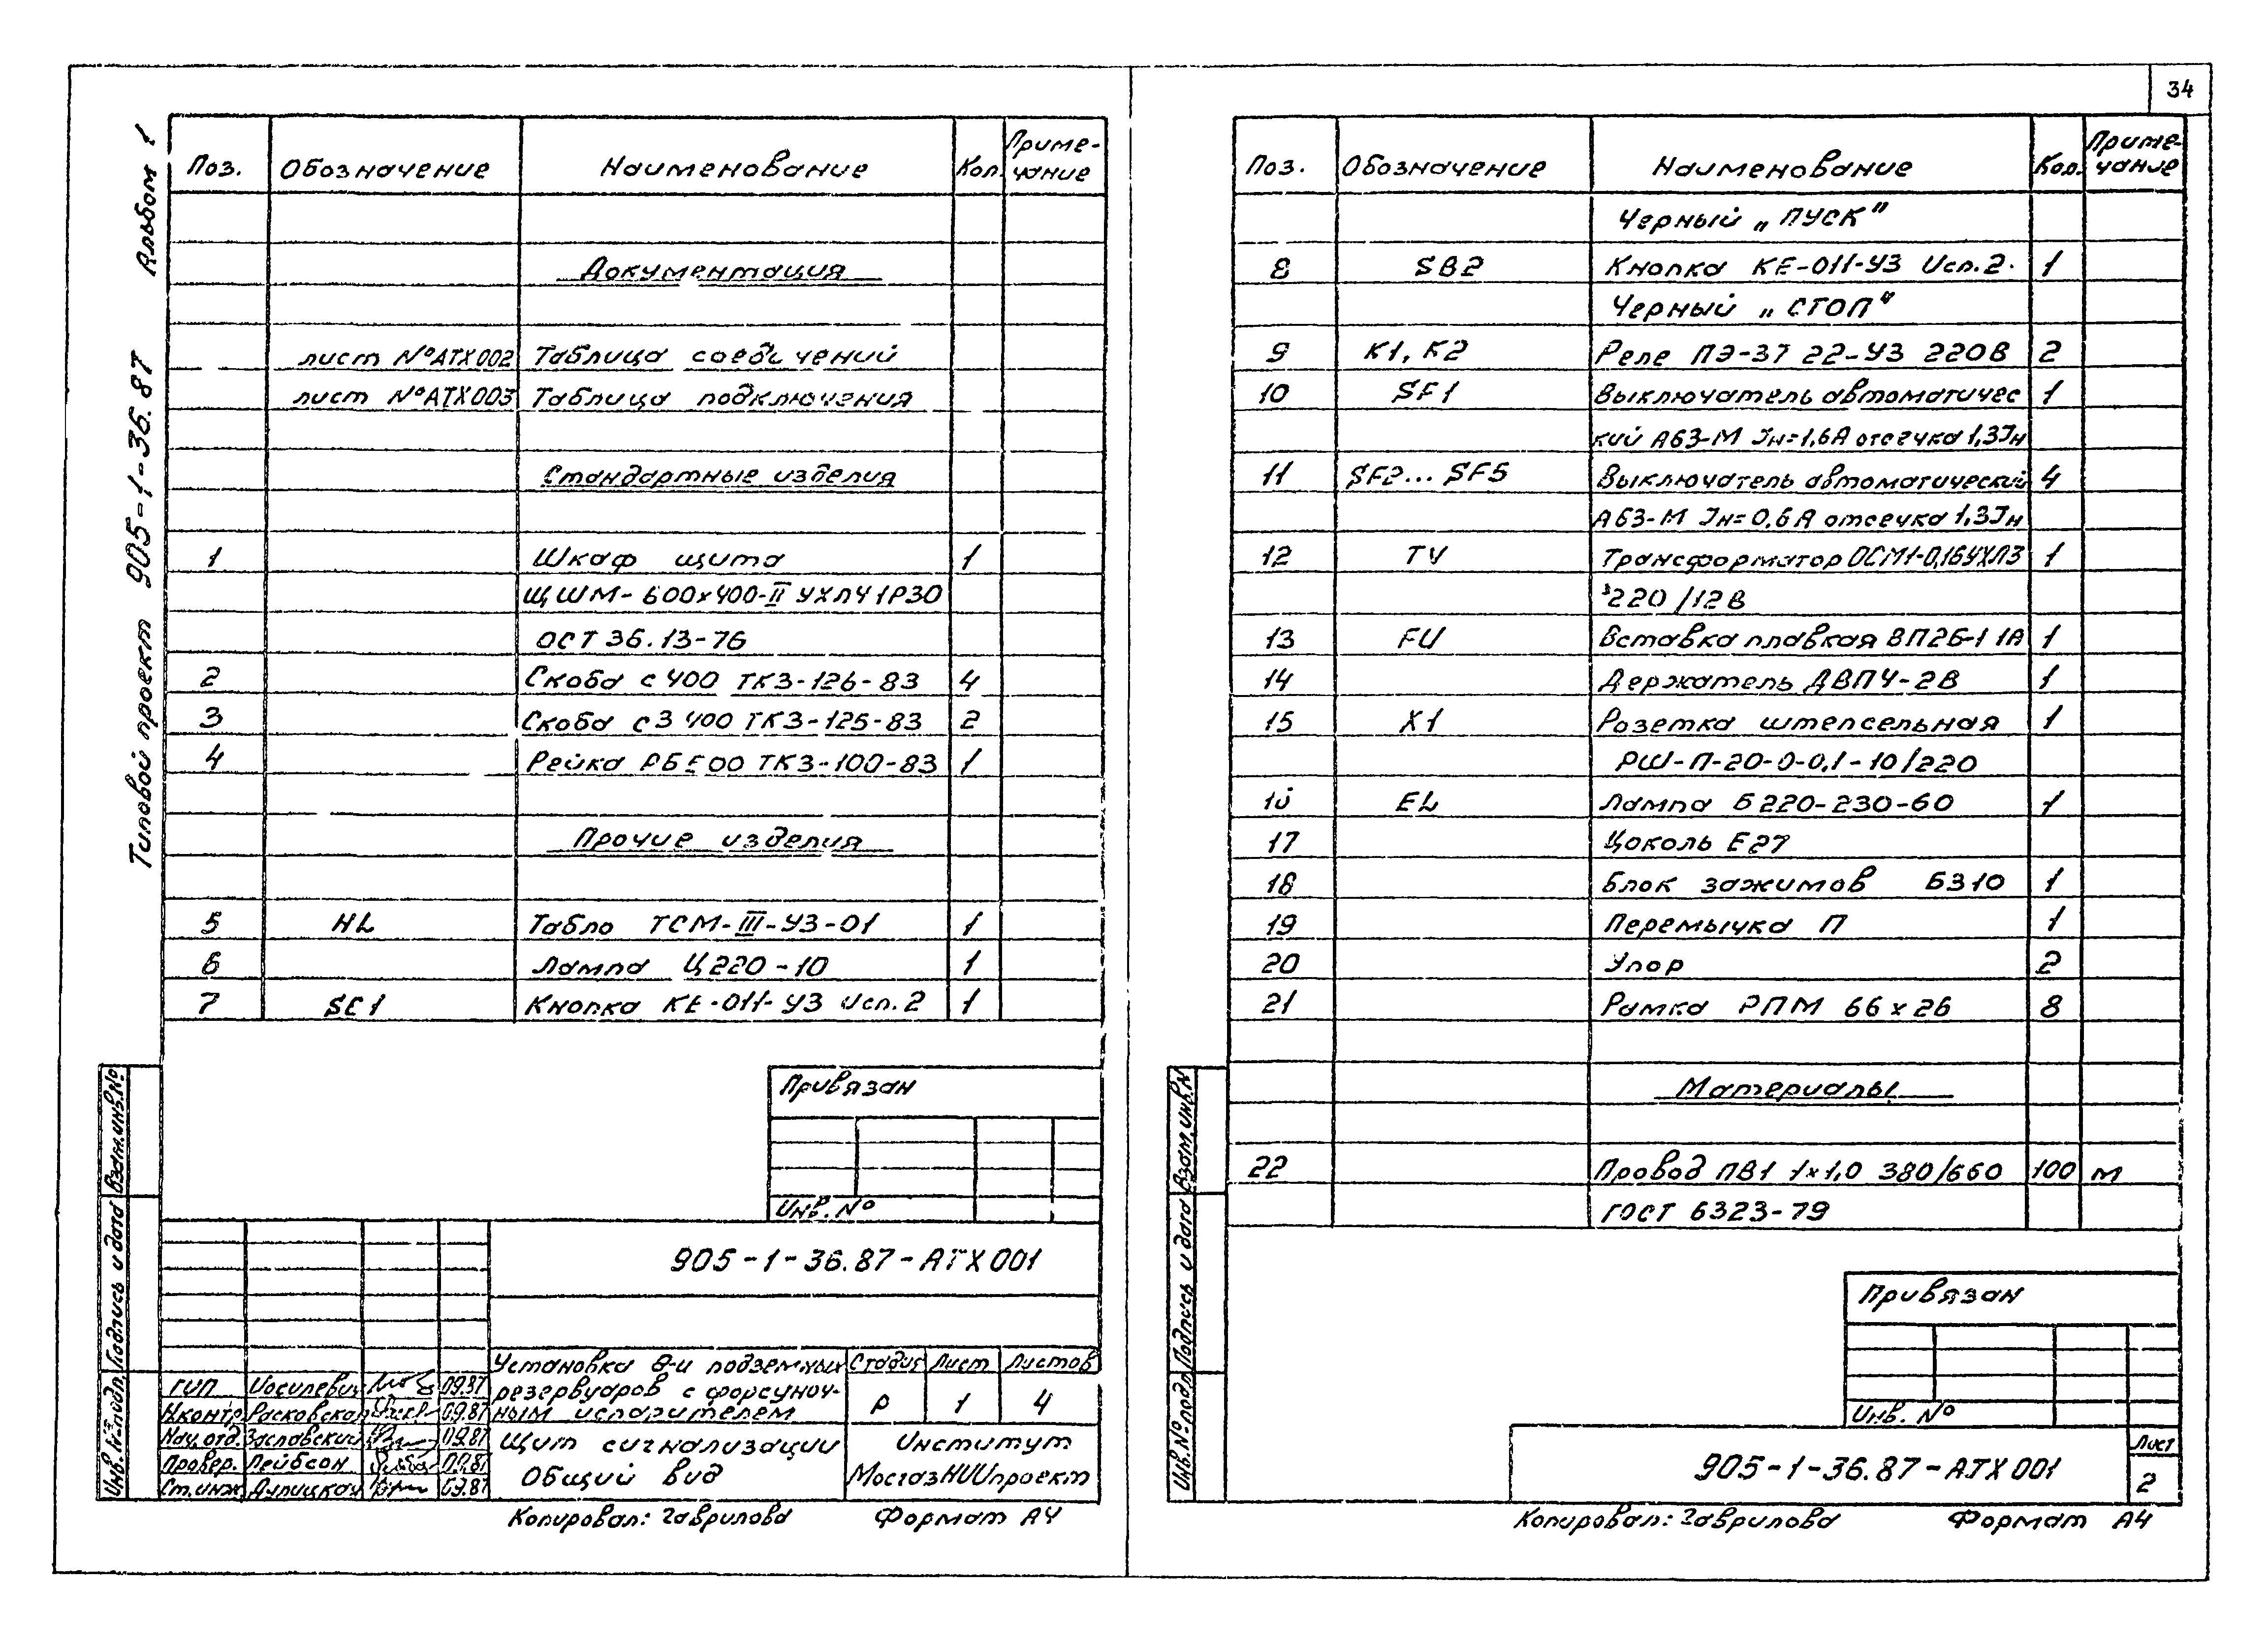 34
Альбом 1
Типовой проект 905-1-36.87
Поз. Обозначение Наименование Кол. Приме-
чание
Документация
лист №АТХ002 Таблица соединений
лист №АТХ003 Таблица подключения
Стандартные изделия
1 Шкаф щита 1
ЩШМ-600х400-II УХЛ4 1Р30
ОСТ 36.13-76
2 Скоба с 400 ТК3-126-83 4
3 Скоба с3 400 ТК3-125-83 2
4 Рейка ТК3-100-83 1
Прочие изделия
5 HL Табло ТСМ-III-У3-01 1
6 Лампа Ц220-10 1
7 Кнопка КЕ-011-У3 Исп.2 1
Привязан
Инв. №
905-1-36.87-АТХ001
Установка 8-и подземных
резервуаров с форсуноч-
ным испарителем
Стадия Лист Листов
Р 1 4
ГИП 09.87
Н.контр. Расковская 09.87
Нач.отд. Заславский 09.87
Провер. Лейбсон 09.87
Ст.инж. 09.87
Щит сигнализации
Общий вид
Институт
МосгазНИИпроект
Копировал: Гаврилова Формат А4
Взам.инв.№
Подпись и дата
Инв.№ подл.
Поз. Обозначение Наименование Кол. Приме-
чание
Черный „ПУСК"
8 SB2 Кнопка КЕ-011-У3 Исп.2. 1
Черный „СТОП"
9 К1, К2 Реле ПЭ-37 22-У3 220В 2
10 SF1 Выключатель автоматичес 1
кий А63-М Iн=1,6А отсечка 1,3Iн
11 SF2...SF5 Выключатель автоматический 4
А63-М Iн=0,6А отсечка 1,3Iн
12 TV Трансформатор ОСМ1-0,16УХЛ3 1
220/12В
13 FU Вставка плавкая ВП2Б-1 1А 1
14 Держатель ДВП4-2В 1
15 X1 Розетка штепсельная 1
РШ-П-20-0-0,1-10/220
16 EL Лампа Б220-230-60 1
17 Цоколь Е27
18 Блок зажимов БЗ10 1
19 Перемычка П 1
20 Упор 2
21 Рамка РПМ 66х26 8
Материалы
22 Провод ПВ1 1х1,0 380/660 100 м
ГОСТ 6323-79
Привязан
Инв. №
905-1-36.87-АТХ001
Лист
2
Копировал: Гаврилова Формат А4
Взам.инв.№
Подпись и дата
Инв.№ подл.